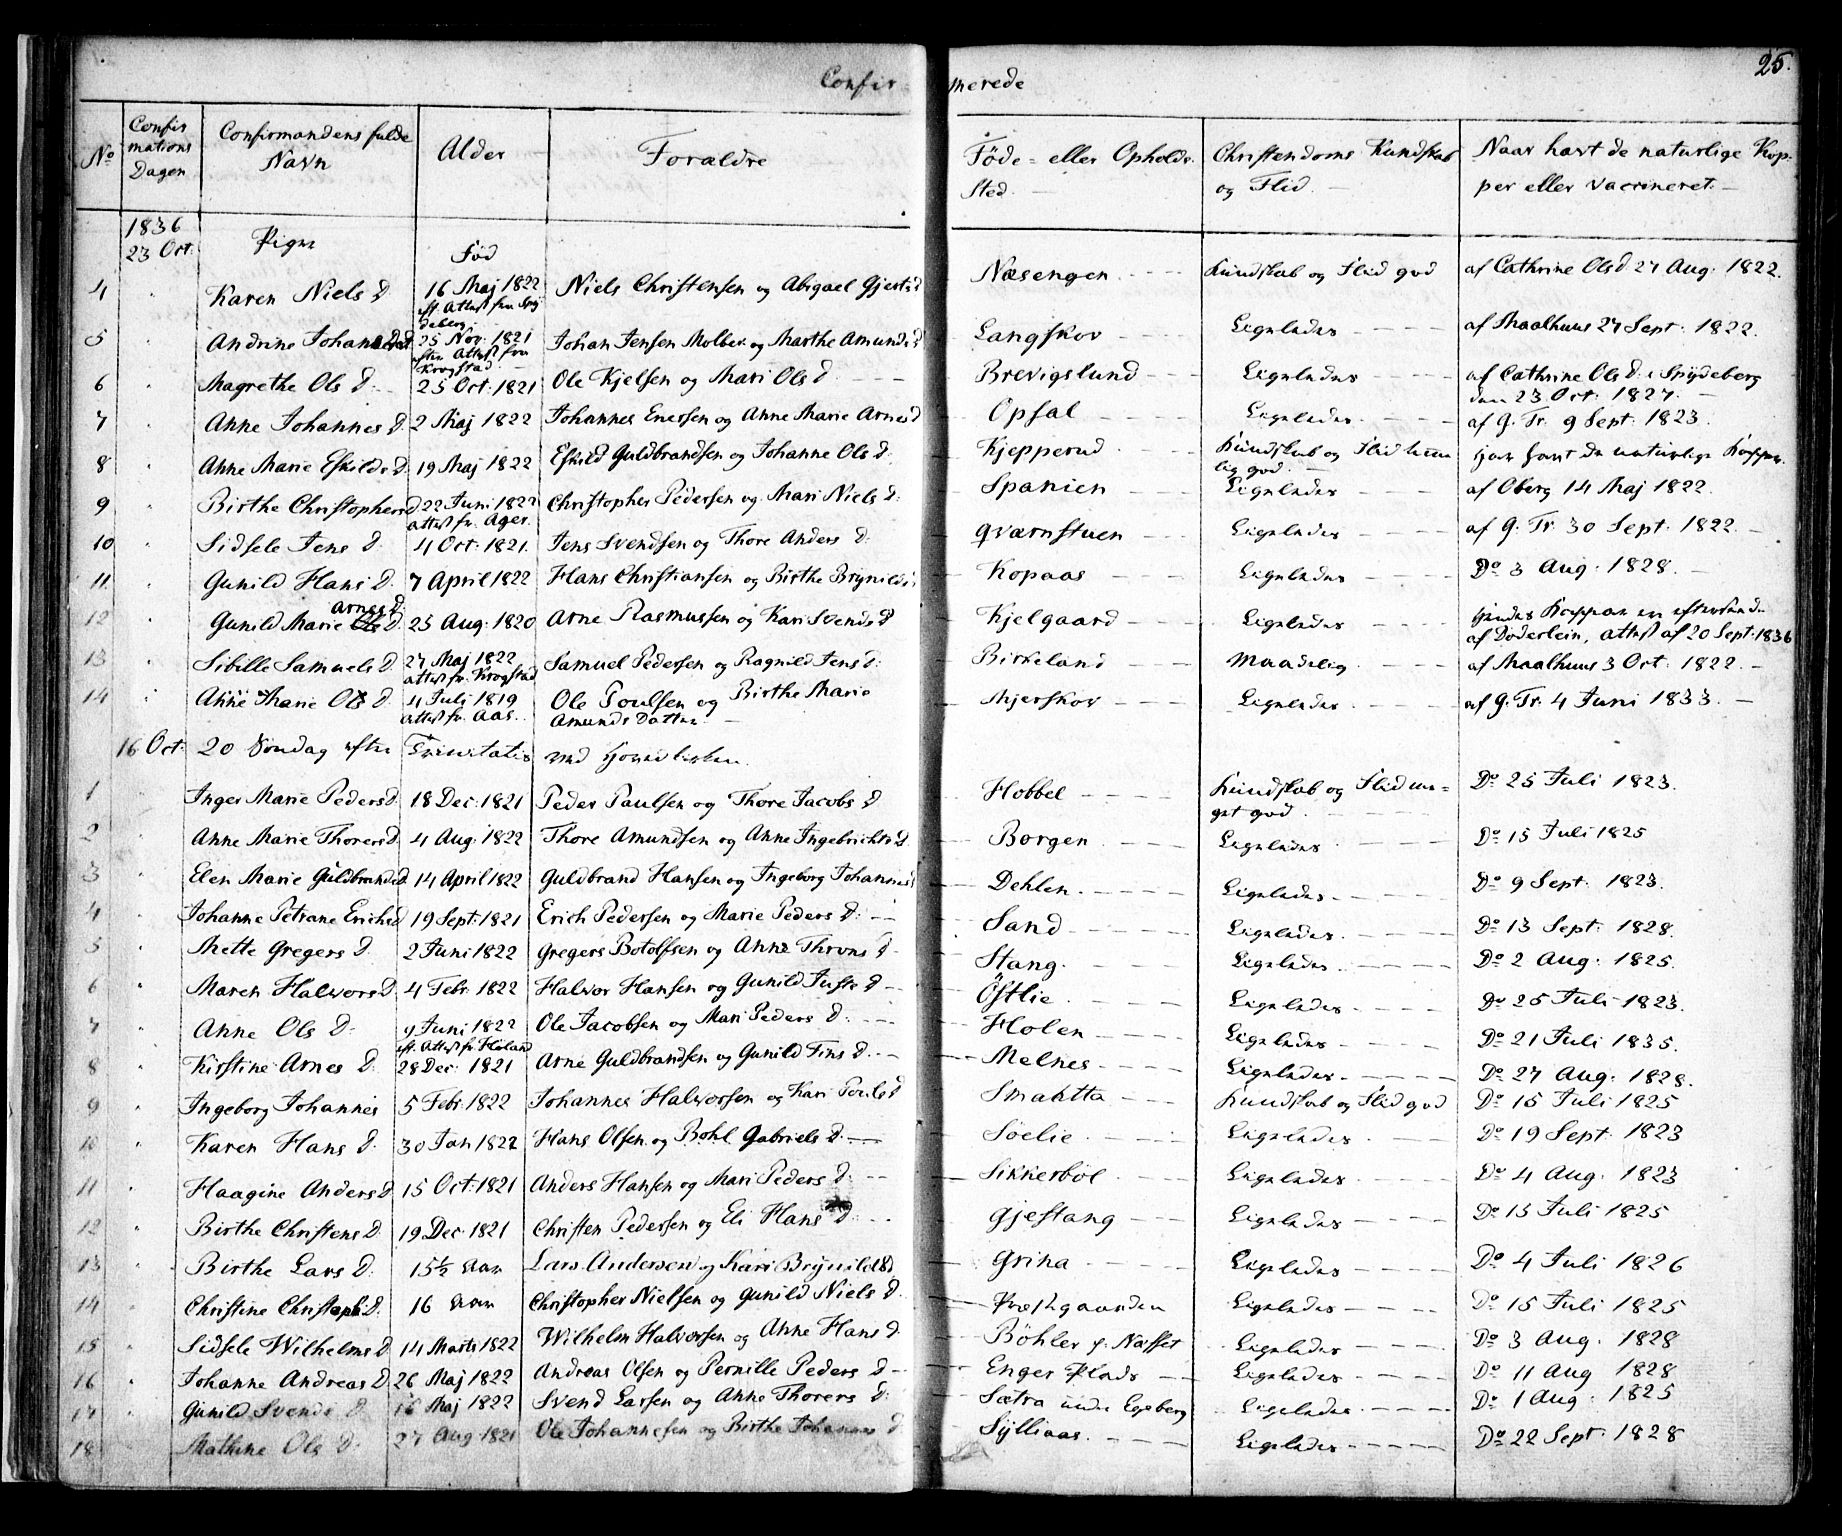 25.
Confirmerede
No
Confirmations Dagen
Confirmandens fulde Navn
Alder
Foraldre
Föde- eller Opholds Sted.
Christendoms Kundskab og Flid.
Naar havt de naturlige Kopper eller vaccineret.
1836
23 Oct: Piger Fød
4 Karen Niels D. 16 Maj 1822 Niels Christensen og Abigael Gjerts D Næsengen Kundskab og Flid god af Cathrine Ols D 27 Aug: 1822.
eft. Attest fra Spydeberg.
5 Andrine Johans D 25 Nov: 1821 Johan Jensen Molber og Marthe Amunds D Langskov Ligeledes af Maalhuus 27 Sept: 1822.
efter Attest fra Krogstad.
6 Magrethe Ols D. 25 Oct: 1821 Ole Kjelsen og Mari Ols D Brevigslund Ligeledes af Cathrine Ols D. i Spydeberg
den 23 Oct: 1827.
7 Anne Johannes D. 2 Maj 1822 Johannes Enersen og Anne Marie Arnes D Opsal Ligeledes af G. Tr. 9 Sept: 1823.
8 Anne Marie Eskilds D. 19 Maj 1822 Eskild Guldbrandsen og Johanne Ols D. Kjepperud Kundskab og Flid temmelig god. har havt de naturlige Kopper.
9 Birthe Christophers D 22 Juni 1822 Christopher Pedersen og Mari Niels D: Spanien Ligeledes af Oberg 14 Maj 1822.
Attest fr. Ager.
10 Sidsele Jens D. 4 Oct: 1821. Jens Svendsen og Thore Anders D: Qværnstuen Ligeledes af G. Tr. 30 Sept: 1822.
11 Gunild Hans D. 7 April 1822 Hans Christiansen og Birthe Brynilds D Kopaas Ligeledes Do 3 Aug: 1828.
Arnes D.
12 Gunild Marie D. 25 Aug: 1820 Arne Rasmussen og Kari Svends D Kjelgaard Ligeledes
af Döderlein, Attest af 20 Sept: 1836
13 Sibille Samuels D. 27 Maj 1822 Samuel Pedersen og Ragnild Jens D: Birkeland Maadelig af Maalhuus 3 Oct: 1822.
Attest fr. Krogstad
14 Anne Marie Ols D. 4 Juli 1819 Ole Poulsen og Birthe Marie Mjerskov Ligeledes af G. Tr. 4 Juni 1833.
Attest fr. Aas. Amunds Datter
16 Oct: 20 Søndag efter Trinitatis ved Hovedkirken.
1 Inger Marie Peders D. 18 Dec: 1821 Peder Paulsen og Thore Jacobs D Hobbel Kundskab og Flid meget god. Do 25 Juli 1823.
2 Anne Marie Thorers D. 4 Aug: 1822 Thore Amundsen og Anne Ingebrichts D. Borgen Ligeledes Do 15 Juli 1825
3 Elen Marie Guldbrands D 14 April 1822 Guldbrand Hansen og Ingeborg Johannes D Dehlen Ligeledes Do 9 Sept: 1823.
4 Johanne Petrane Erichs D 19 Sept: 1821 Erich Pedersen og Marie Peders D: Sand Ligeledes Do 13 Sept: 1828.
5 Mette Gregers D. 2 Juni 1822 Gregers Botolfsen og Anne Throns D Stang. Ligeledes Do 2 Aug: 1825.
6 Maren Halvors D. 4 Febr: 1822 Halvor Hansen og Gunild Justs D Östlie Ligeledes Do 25 Juli 1823.
7 Anne Ols D. 9 Juni 1822 Ole Jacobsen og Mari Peders D: Holen Ligeledes Do 21 Juli 1835.
eft. Attest fr. Höland
8 Kirstine Arnes D. 28 Dec: 1821 Arne Guldbrandsen og Gunild Fins D. Melnes Ligeledes Do 27 Aug: 1828.
9 Ingeborg Johannes 5 Febr: 1822 Johannes Halvorsen og Kari Pouls D Smaktta Kundskab og Flid god Do 15 Juli 1825
10 Karen Hans D. 30 Jan 1822 Hans Olsen og Bohl Gabriels D. Söelie Ligeledes Do 19 Sept: 1823
11 Haagine Anders D. 15 Oct: 1821 Anders Hansen og Mari Peders D. Sikkerböl Ligeledes Do 4 Aug: 1823
12 Birthe Christens D. 19 Dec: 1821 Christen Pedersen og Eli Hans D. Gjestang Ligeledes Do 15 Juli 1825
13 Birthe Lars D. 15½ Aar Lars Andersen og Kari Brynilds D Grina Ligeledes Do 4 Juli 1826
14 Christine Christoph: D. 16 Aar Christopher Nielsen og Gunild Niels D. Præstgaarden Ligeledes Do 15 Juli 1825
15 Sidsele Wilhelms D 14 Marts 1822 Wilhelm Halvorsen og Anne Hans D. Böhler p. Næsset Ligeledes Do 3 Aug: 1828
16 Johanne Andreas D. 26 Maj 1822 Andreas Olsen og Pernille Peders D Enger Plads Ligeledes Do 11 Aug 1828
17 Gunild Svends D. 16 Maj 1822 Svend Larsen og Anne Thorers D: Sætra under Egeberg Ligeledes Do 1 Aug: 1825
18 Mathine Ols D. 27 Aug 1821 Ole Johannesen og Birthe Johannes D Sylliaas Ligeledes Do 22 Sept: 1828